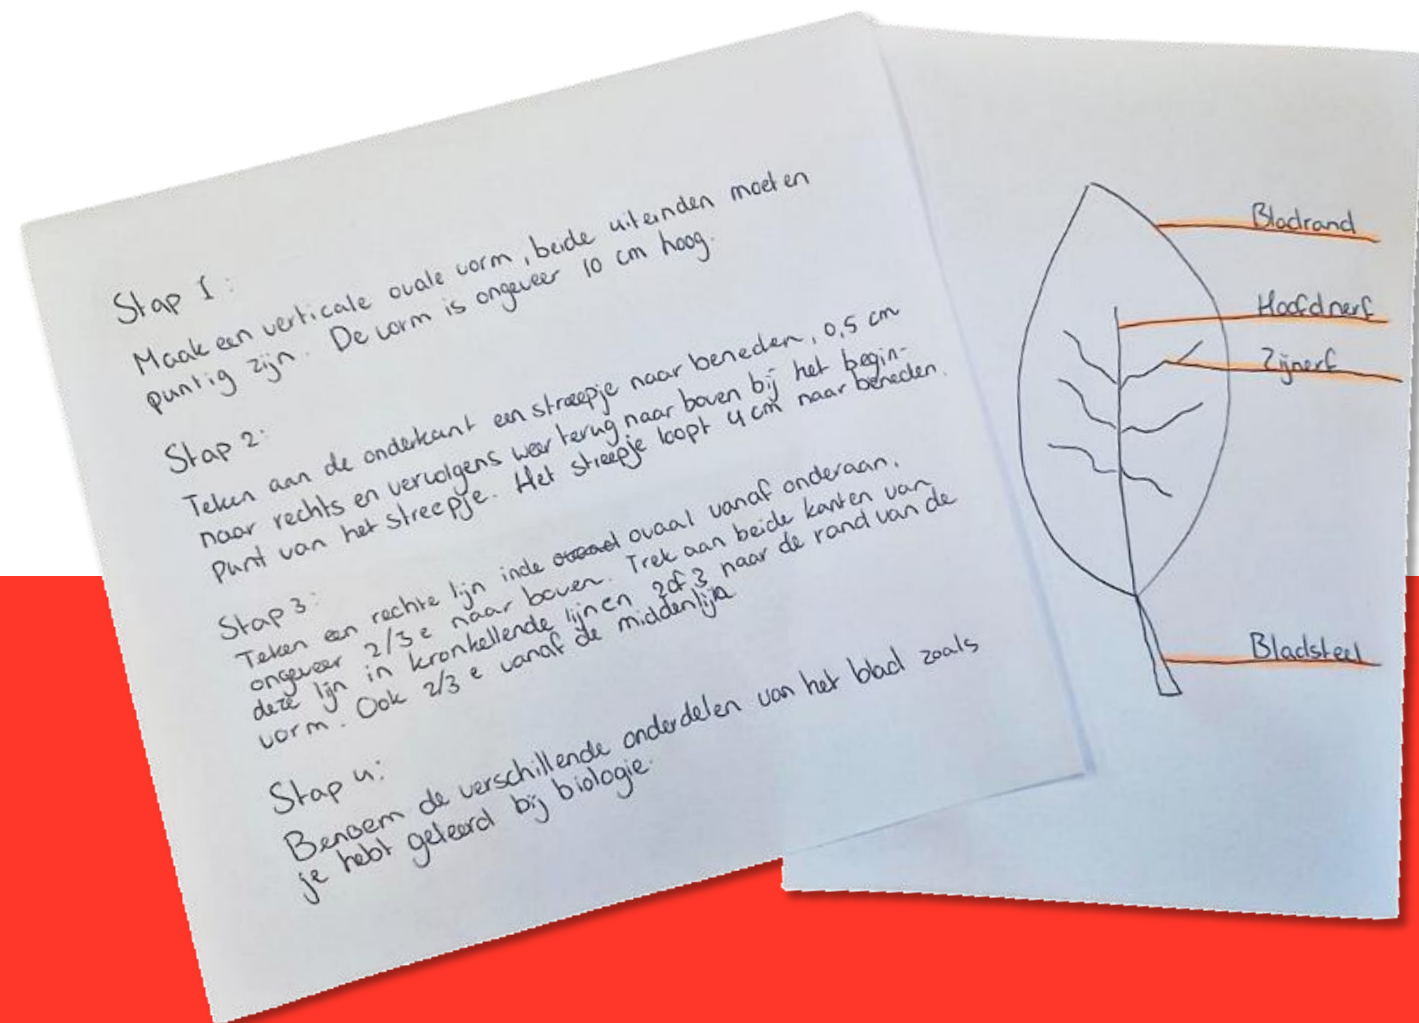 Stap 1:
Maak een verticale ovale vorm, beide uiteinden moeten
puntig zijn. De vorm is ongeveer 10 cm hoog.
Stap 2:
Teken aan de onderkant een streepje naar beneden, 0,5 cm
naar rechts en vervolgens weer terug naar boven bij het begin-
punt van het streepje. Het streepje loopt 4 cm naar beneden.
Stap 3:
Teken een rechte lijn in de ovaal vanaf onderaan,
ongeveer 2/3e naar boven. Trek aan beide kanten van
deze lijn in kronkellende lijnen 2 of 3 naar de rand van de
vorm. Ook 2/3e vanaf de middenlijn.
Stap 4:
Benoem de verschillende onderdelen van het blad zoals
je hebt geleerd bij biologie.
Bladrand
Hoofdnerf
Zijnerf
Bladsteel